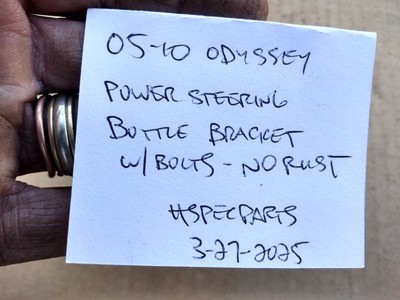 05-10 ODYSSEY
POWER STEERING
BOTTLE BRACKET
W/BOLTS - NO RUST
HSPECPARTS
3-27-2025